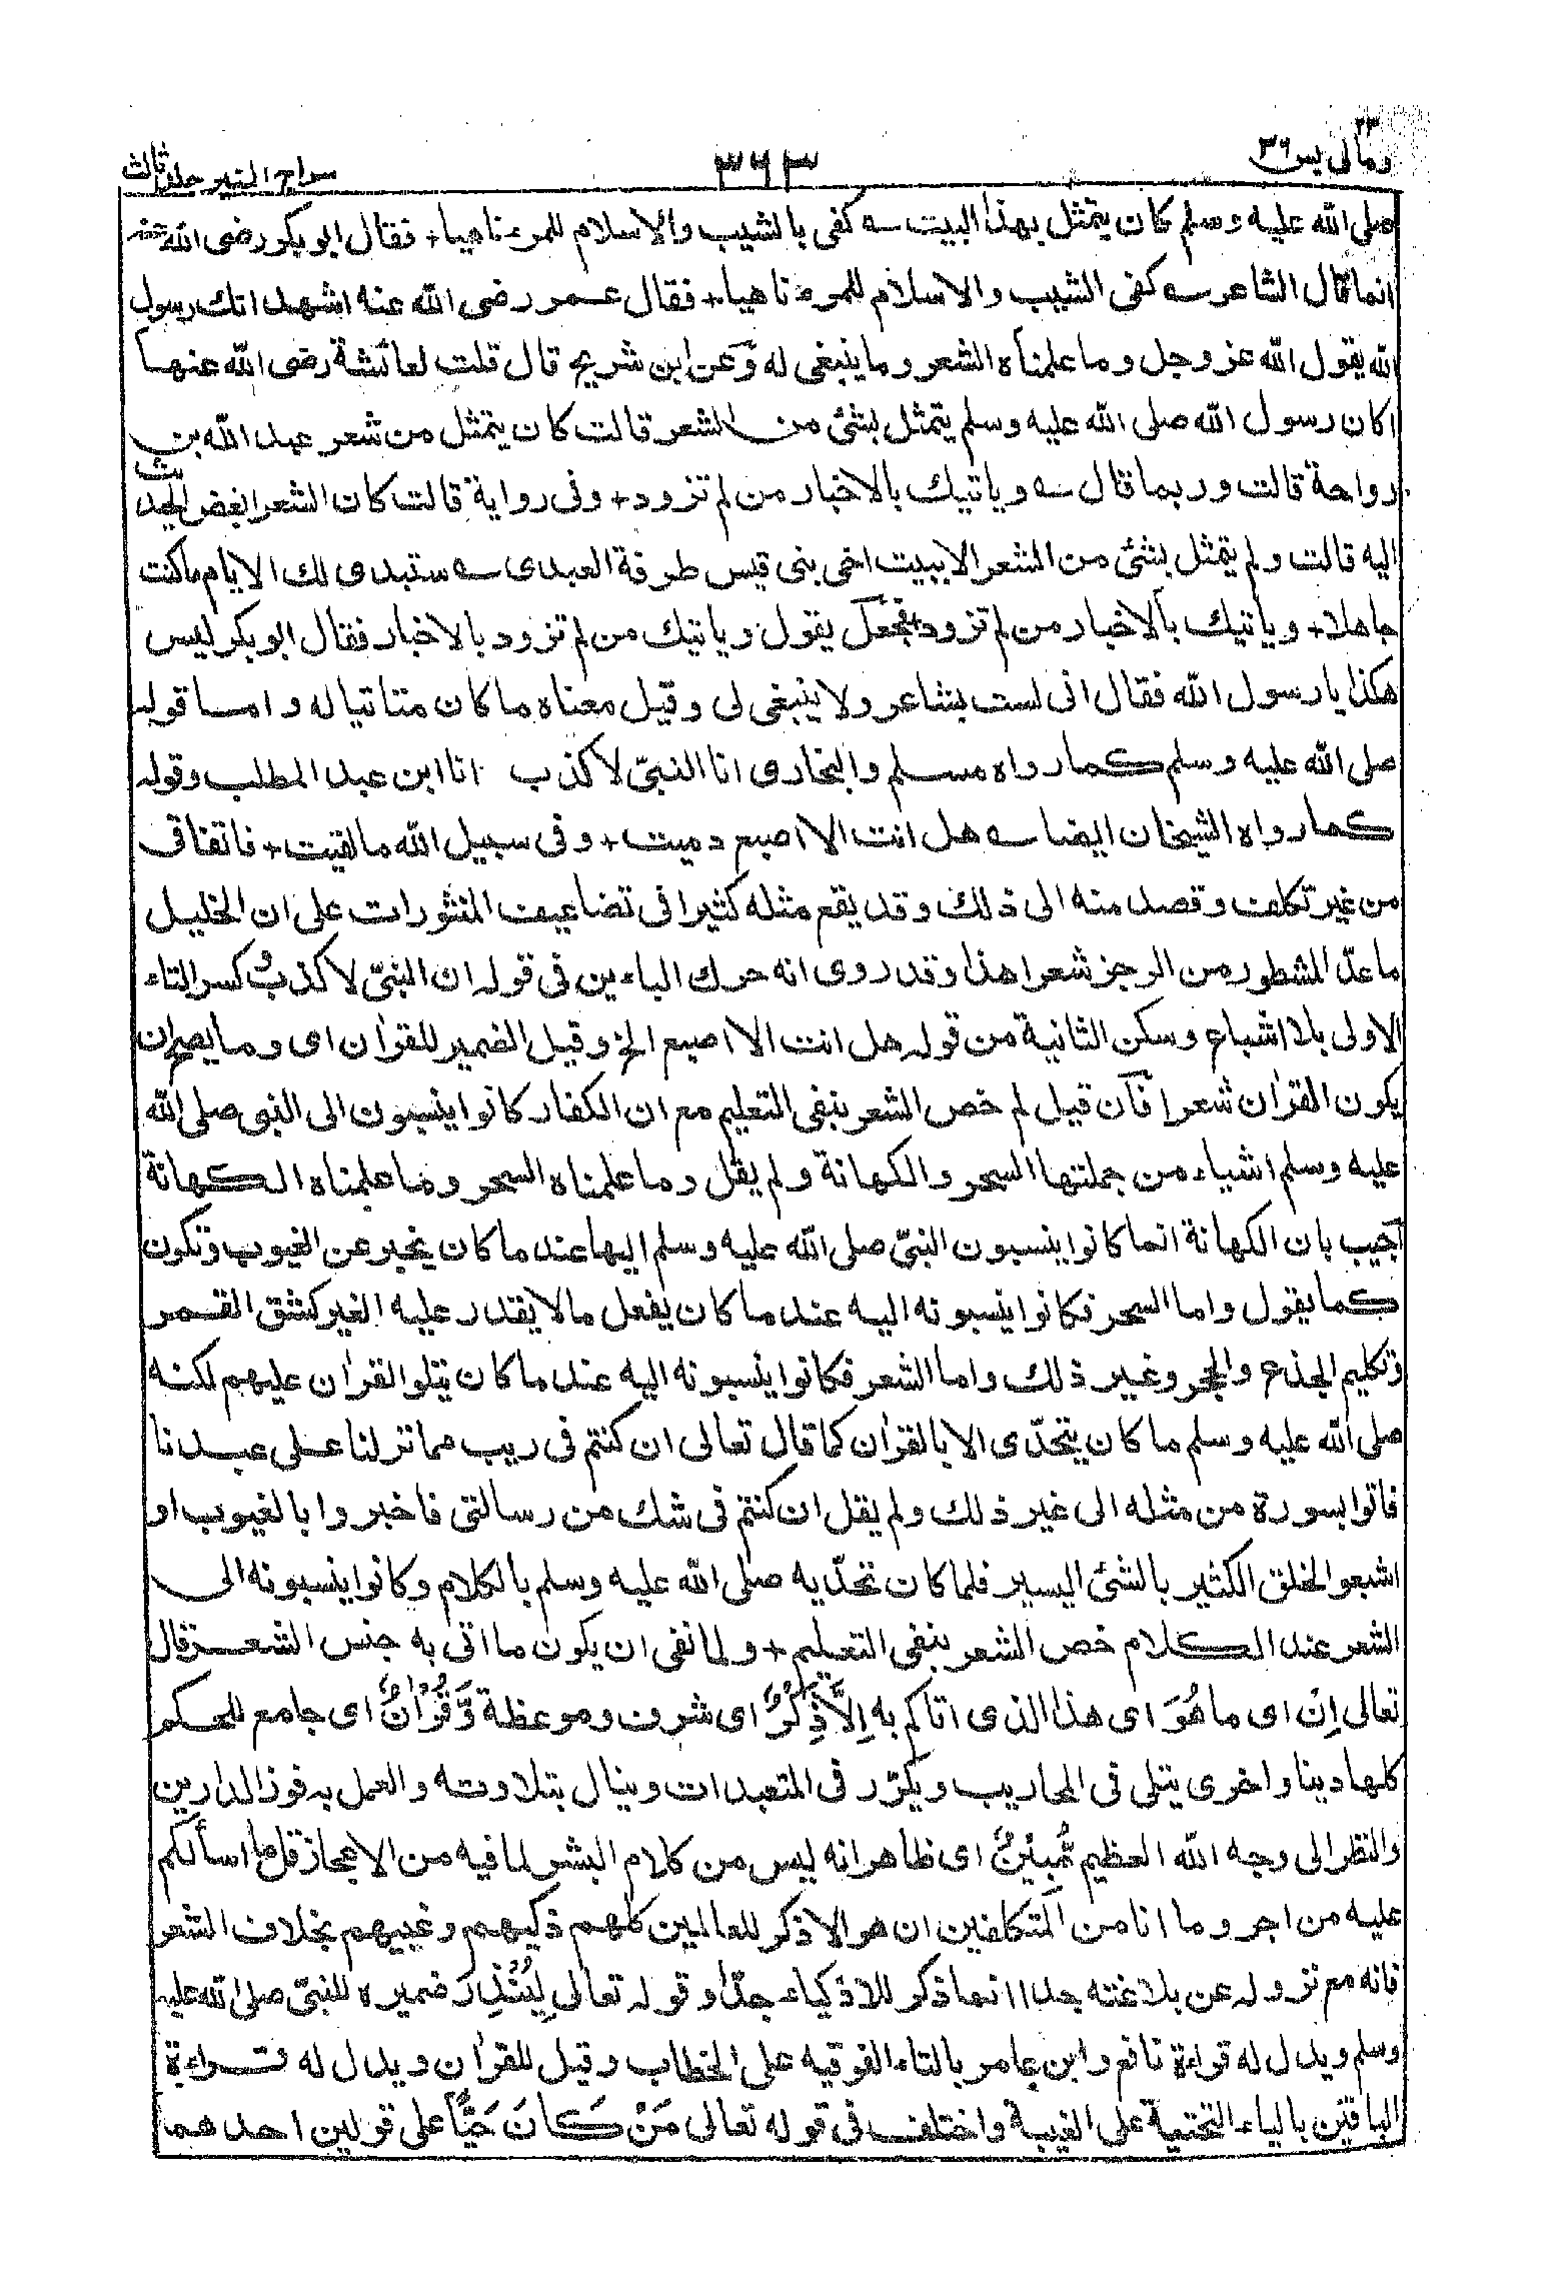 ٢٣
ومالى يس ٣٦
٣٦٣
سراج المنير جلد ثالث
صلى الله عليه وسلم كان يتمثل بهذا البيت ؎ كفى بالشيب والاسلام للمرء ناهيا+ فقال ابو بكر رضى الله عنه
انما قال الشاعر ؎ كفى الشيب والاسلام للمرء ناهيا+ فقال عمر رضى الله عنه اشهد انك رسول
الله يقول الله عز وجل وما علمناه الشعر وما ينبغى له وعن ابن شريح قال قلت لعائشة رضى الله عنها
اكان رسول الله صلى الله عليه وسلم يتمثل بشئ من الشعر قالت كان يتمثل من شعر عبد الله بن
رواحة قالت وربما قال ؎ وياتيك بالاخبار من لم تزود+ وفى رواية قالت كان الشعر ابغض الحديث
اليه قالت ولم يتمثل بشئ من الشعر الا ببيت اخى بنى قيس طرفة العبدى ؎ ستبدى لك الايام ما كنت
جاهلا+ وياتيك بالاخبار من لم تزود+ فجعل يقول وياتيك من لم تزود بالاخبار فقال ابو بكر ليس
هكذا يا رسول الله فقال انى لست بشاعر ولا ينبغى لى وقيل معناه ما كان متاتيا له واما قوله
صلى الله عليه وسلم كما رواه مسلم والبخارى انا النبىّ لا كذب انا ابن عبد المطلب وقوله
كما رواه الشيخان ايضا ؎ هل انت الا اصبع دميت+ وفى سبيل الله ما لقيت+ فاتفاقى
من غير تكلف وقصد منه الى ذلك وقد يقع مثله كثيرا فى تضاعيف المنثورات على ان الخليل
ما عدّ المشطور من الرجز شعرا هذا وقد روى انه حرك الباءين فى قوله ان النبىّ لا كذب وكسر التاء
الاولى بلا اشباع وسكن الثانية من قوله هل انت الا اصبع الخ وقيل الضمير للقراٰن اى وما يصح ان
يكون القراٰن شعرا فان قيل لم خص الشعر بنفى التعليم مع ان الكفار كانوا ينسبون الى النبى صلى الله
عليه وسلم اشياء من جملتها السحر والكهانة ولم يقل وما علمناه السحر وما علمناه الكهانة
اجيب بان الكهانة انما كانوا ينسبون النبىّ صلى الله عليه وسلم اليها عند ما كان يخبر عن الغيوب وتكون
كما يقول واما السحر فكانوا ينسبونه اليه عند ما كان يفعل ما لا يقدر عليه الغير كشق القمر
وتكليم الجذع والحجر وغير ذلك واما الشعر فكانوا ينسبونه اليه عند ما كان يتلو القراٰن عليهم لكنه
صلى الله عليه وسلم ما كان يتحدّى الا بالقراٰن كما قال تعالى ان كنتم فى ريب مما نزلنا على عبدنا
فاتوا بسورة من مثله الى غير ذلك ولم يقل ان كنتم فى شك من رسالتى فاخبروا بالغيوب او
اشبعوا الخلق الكثير بالشئ اليسير فلما كان تحدّيه صلى الله عليه وسلم بالكلام وكانوا ينسبونه الى
الشعر عند الكلام خص الشعر بنفى التعليم+ ولما نفى ان يكون ما اتى به جنس الشعر قال
تعالى اِنْ اى ما هُوَ اى هذا الذى اتاكم به اِلَّا ذِكْرٌ اى شرف وموعظة وَّقُرْاٰنٌ اى جامع للحكم
كلها دينا واخرى يتلى فى المحاريب ويكرّر فى المتعبدات وينال بتلاوته والعمل به فوز الدارين
والنظر الى وجه الله العظيم مُّبِيْنٌ اى ظاهر انه ليس من كلام البشر لما فيه من الاعجاز قل ما اسألكم
عليه من اجر وما انا من المتكلفين ان هو الا ذكر للعالمين كلهم ذكيهم وغبيهم بخلاف الشعر
فانه مع نزوله عن بلاغته جدا انما ذكر للاذكياء جدّا وقوله تعالى لِيُنْذِرَ ضميره للنبىّ صلى الله عليه
وسلم ويدل له قراءة نافع وابن عامر بالتاء الفوقيه على الخطاب وقيل للقراٰن ويدل له قراءة
الباقين بالياء التحتية على الغيبة واختلف فى قوله تعالى مَنْ كَانَ حَيًّا على قولين احدهما